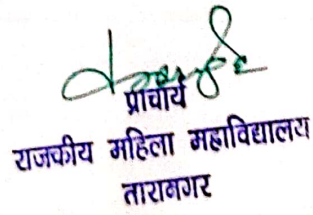 प्राचार्य
राजकीय महिला महाविद्यालय
तारानगर